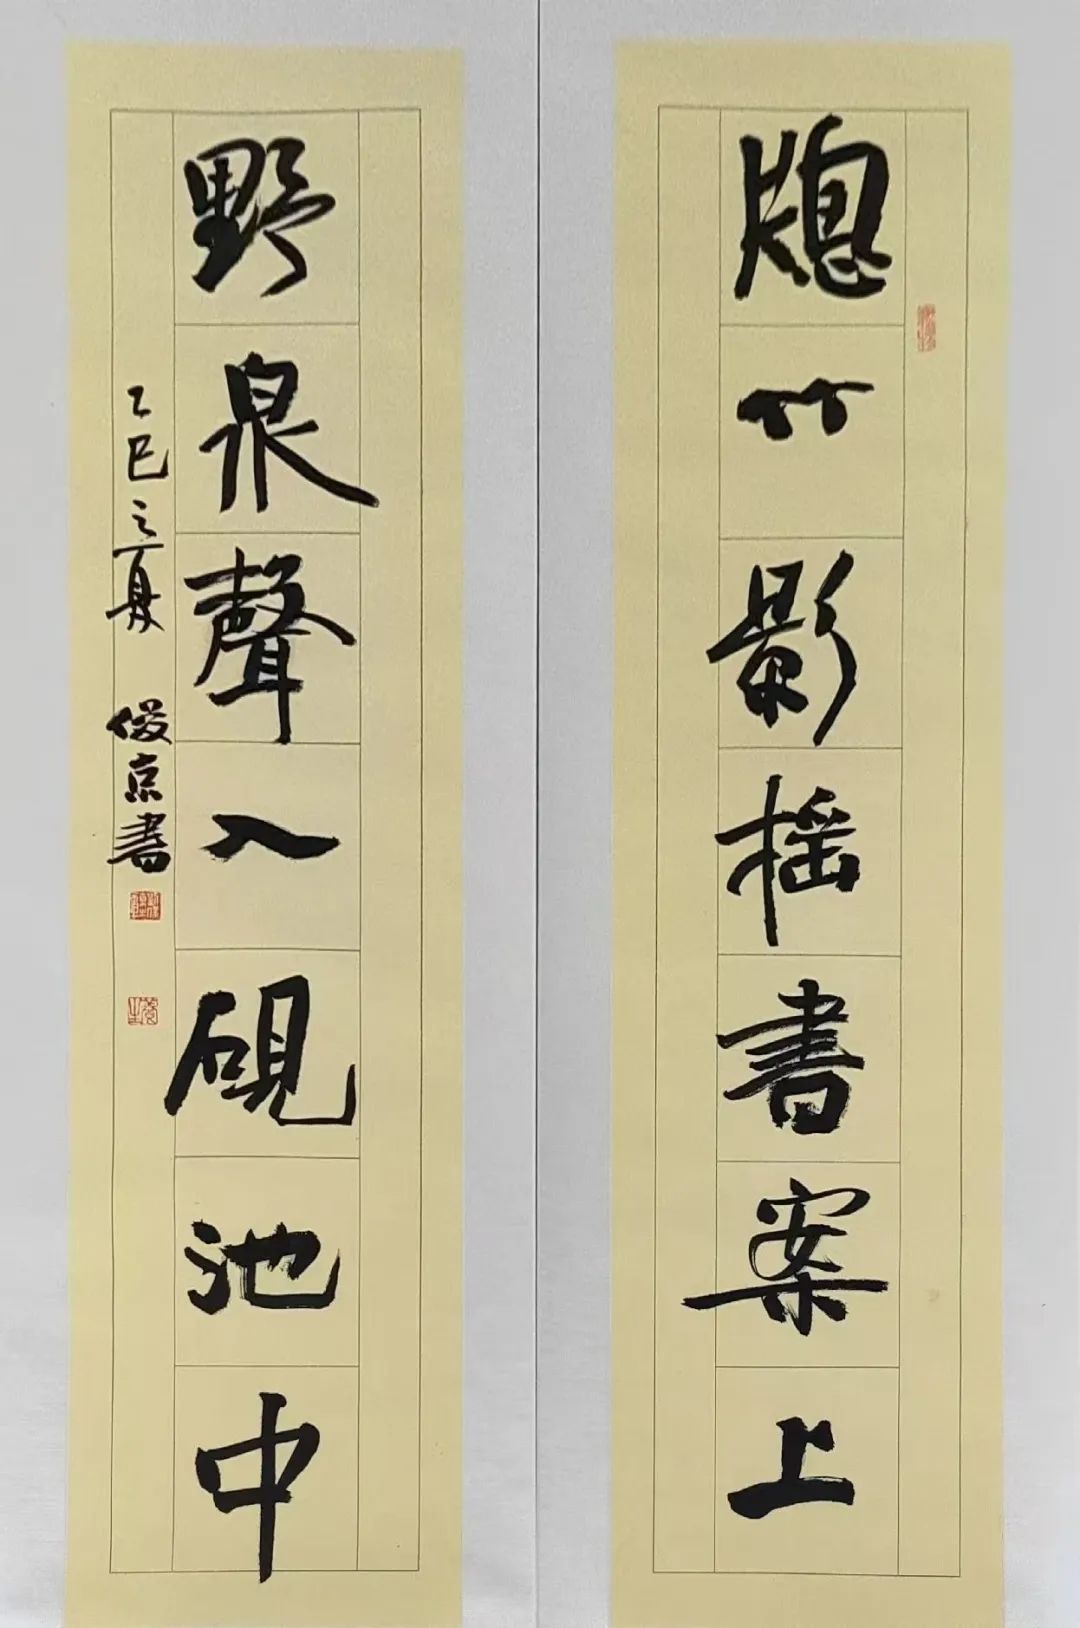 牕竹影摇書案上
野泉聲入硯池中
乙巳之夏 俊京書